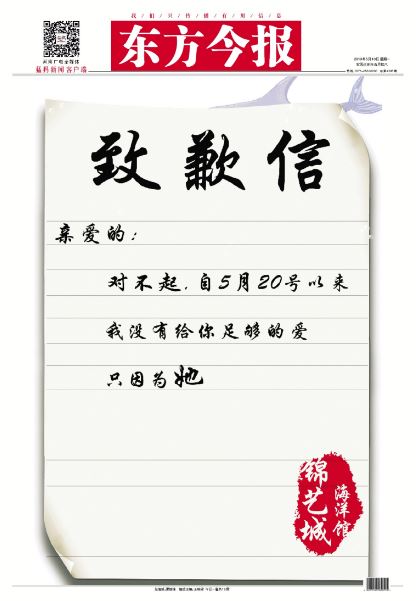 我们只传播有用信息
东方今报
猛犸新闻客户端
致歉信
亲爱的：
对不起，自5月20号以来
我没有给你足够的爱
只因为她
锦艺城
海洋馆